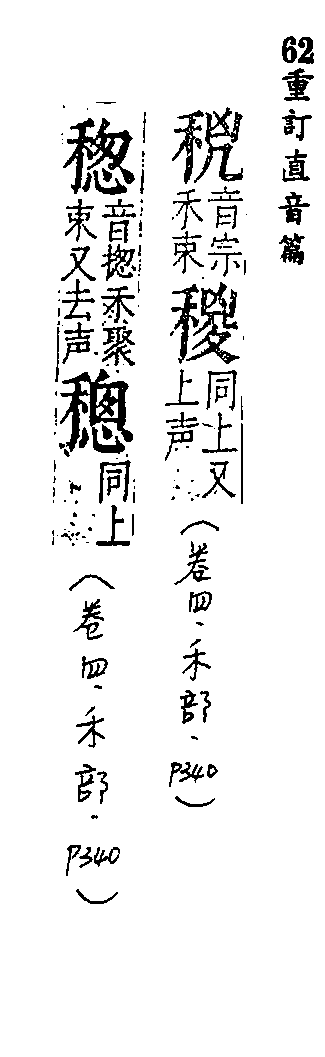 62重訂直音篇
音宗禾束稯同上又上声(卷四、禾部、P340)
音揔禾聚束又去声
同上(卷四、禾部、P340)